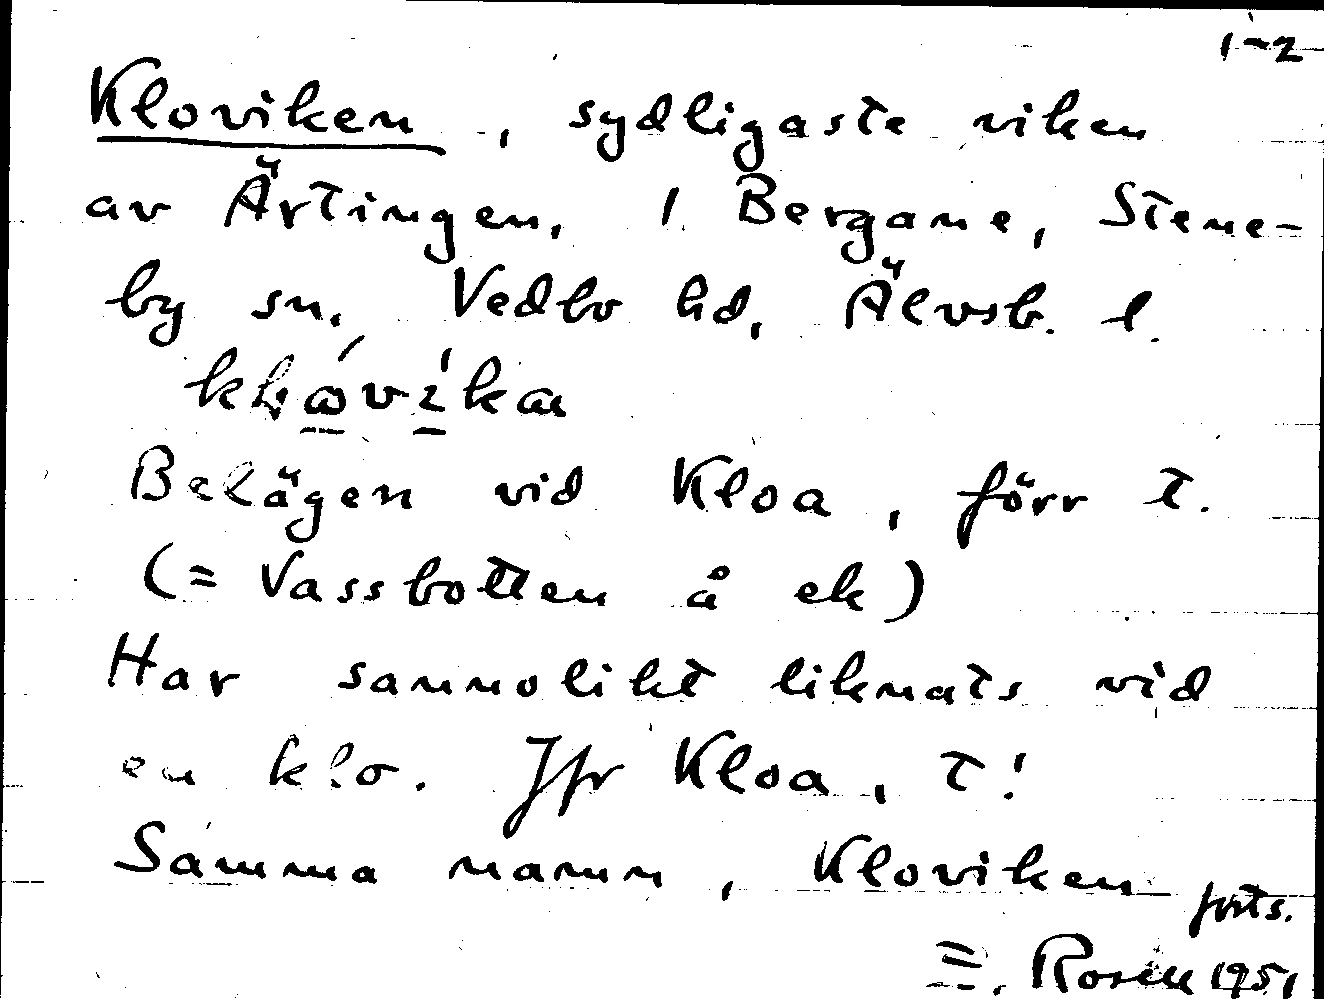 1-2
Kloviken, sydligaste viken
av Ärtingen, 1. Bergane, Stene-
by sn, Vedbo hd, Älvsb. l.
Belägen vid Kloa, förr t.
(= Vassbotten å ek)
Har sannolikt liknats vid
en klo. Jfr Kloa, t!
Samma namn, Kloviken
forts.
E. Rosell 1951